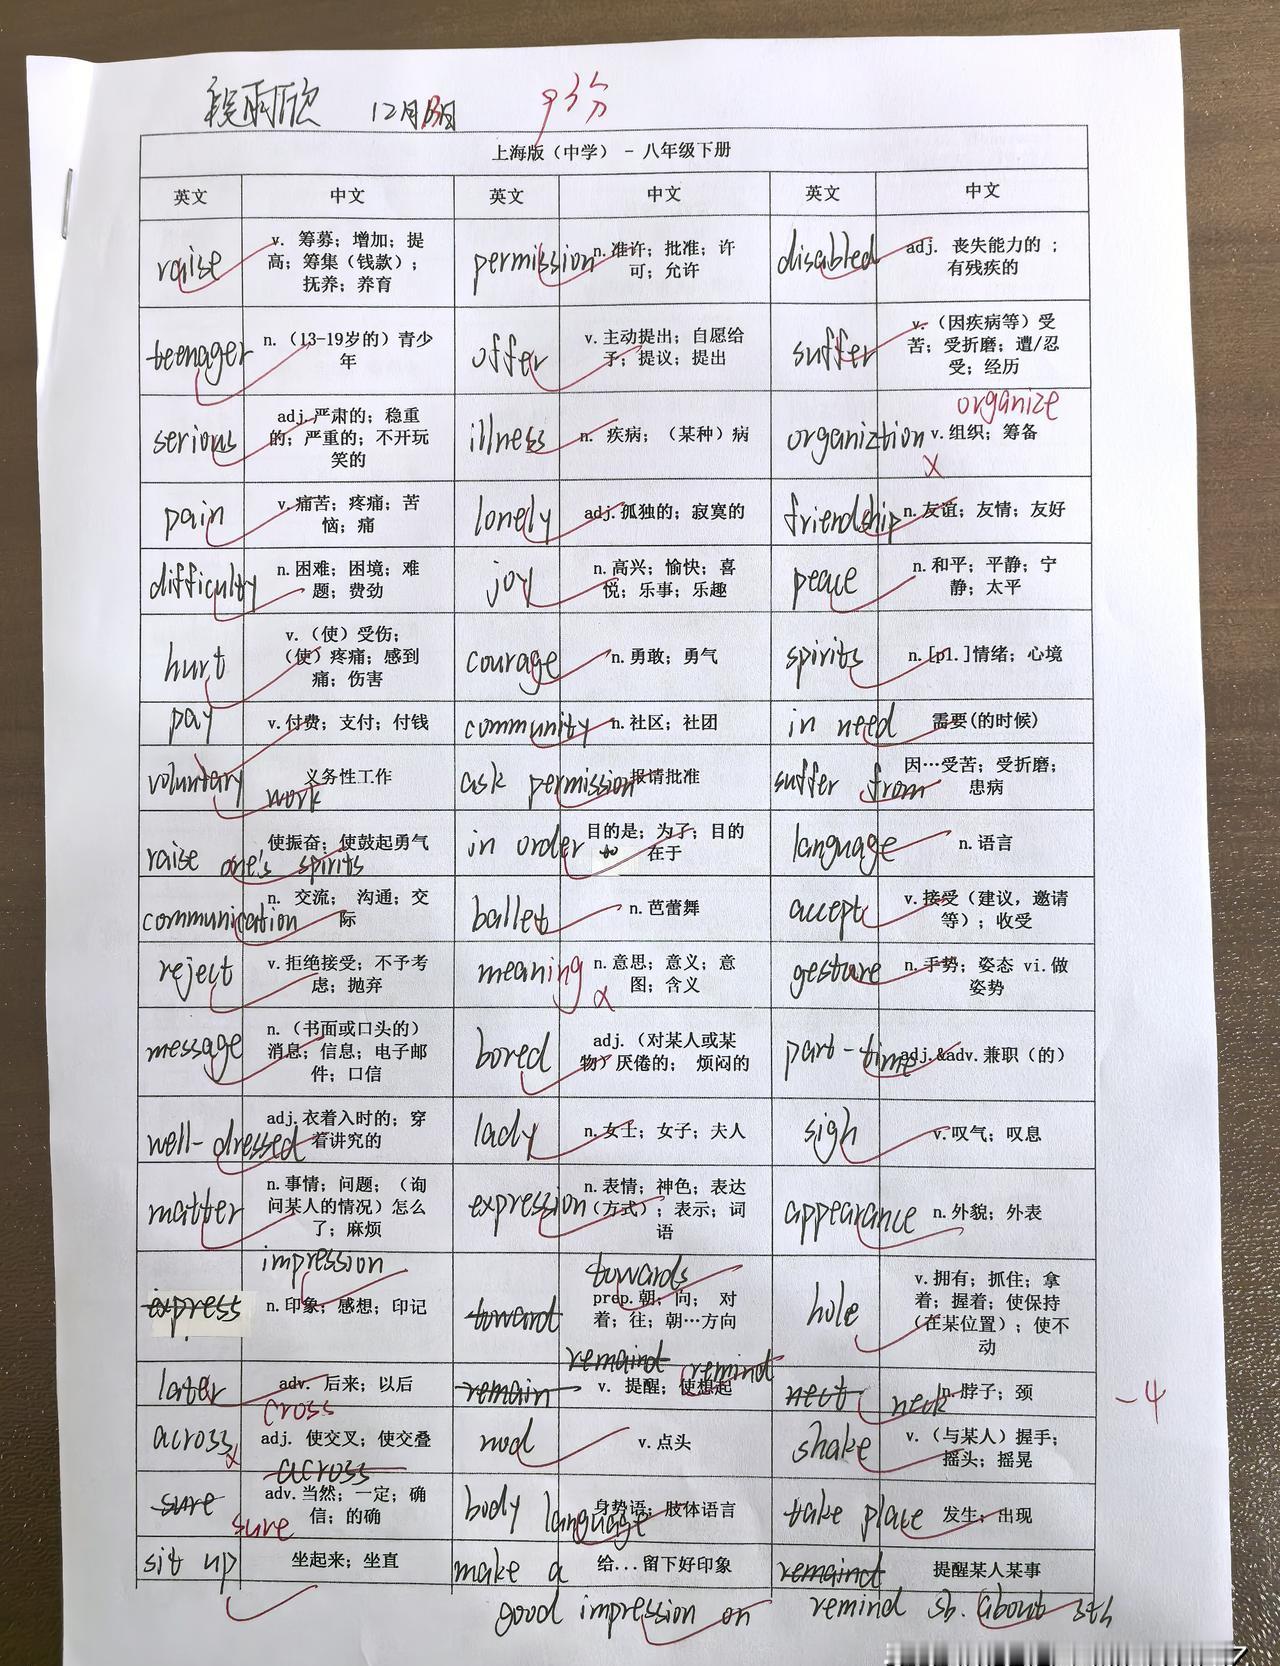 段雨欣 12月13日 93分
上海版（中学） - 八年级下册
英文 中文 英文 中文 英文 中文
raise v. 筹募；增加；提高；筹集（钱款）；抚养；养育 permission n.准许；批准；许可；允许 disabled adj. 丧失能力的；有残疾的
teenager n.（13-19岁的）青少年 offer v.主动提出；自愿给予；提议；提出 suffer v.（因疾病等）受苦；受折磨；遭/忍受；经历
serious adj.严肃的；稳重的；严重的；不开玩笑的 illness n. 疾病；（某种）病 organiztion organize v.组织；筹备
pain v.痛苦；疼痛；苦恼；痛 lonely adj.孤独的；寂寞的 friendship n.友谊；友情；友好
difficulty n.困难；困境；难题；费劲 joy n.高兴；愉快；喜悦；乐事；乐趣 peace n.和平；平静；宁静；太平
hurt v.（使）受伤；（使）疼痛；感到痛；伤害 courage n.勇敢；勇气 spirits n.[pl.]情绪；心境
pay v.付费；支付；付钱 community n.社区；社团 in need 需要(的时候)
voluntary work 义务性工作 ask permission 报请批准 suffer from 因…受苦；受折磨；患病
raise one's spirits 使振奋；使鼓起勇气 in order to 目的是；为了；目的在于 language n.语言
communication n. 交流； 沟通；交际 ballet n.芭蕾舞 accept v.接受（建议，邀请等）；收受
reject v.拒绝接受；不予考虑；抛弃 meaning n.意思；意义；意图；含义 gesture n.手势；姿态 vi.做姿势
message n.（书面或口头的）消息；信息；电子邮件；口信 bored adj.（对某人或某物）厌倦的； 烦闷的 part-time adj.&adv.兼职（的）
well-dressed adj.衣着入时的；穿着讲究的 lady n.女士；女子；夫人 sigh v.叹气；叹息
matter n.事情；问题；（询问某人的情况）怎么了；麻烦 expression n.表情；神色；表达（方式）；表示；词语 appearance n.外貌；外表
express impression n.印象；感想；印记 toward towards prep.朝；向； 对着；往；朝…方向 hole v.拥有；抓住；拿着；握着；使保持（在某位置）；使不动
later adv. 后来；以后 remain remaind remind v. 提醒；使想起 nect neck n.脖子；颈
-4
across cross adj. 使交叉；使交叠 nod v.点头 shake v.（与某人）握手；摇头；摇晃
sure across sure adv.当然；一定；确信；的确 body language 身势语；肢体语言 take place 发生；出现
sit up 坐起来；坐直 make a good impression on 给...留下好印象 remaind remind sb. about sth 提醒某人某事